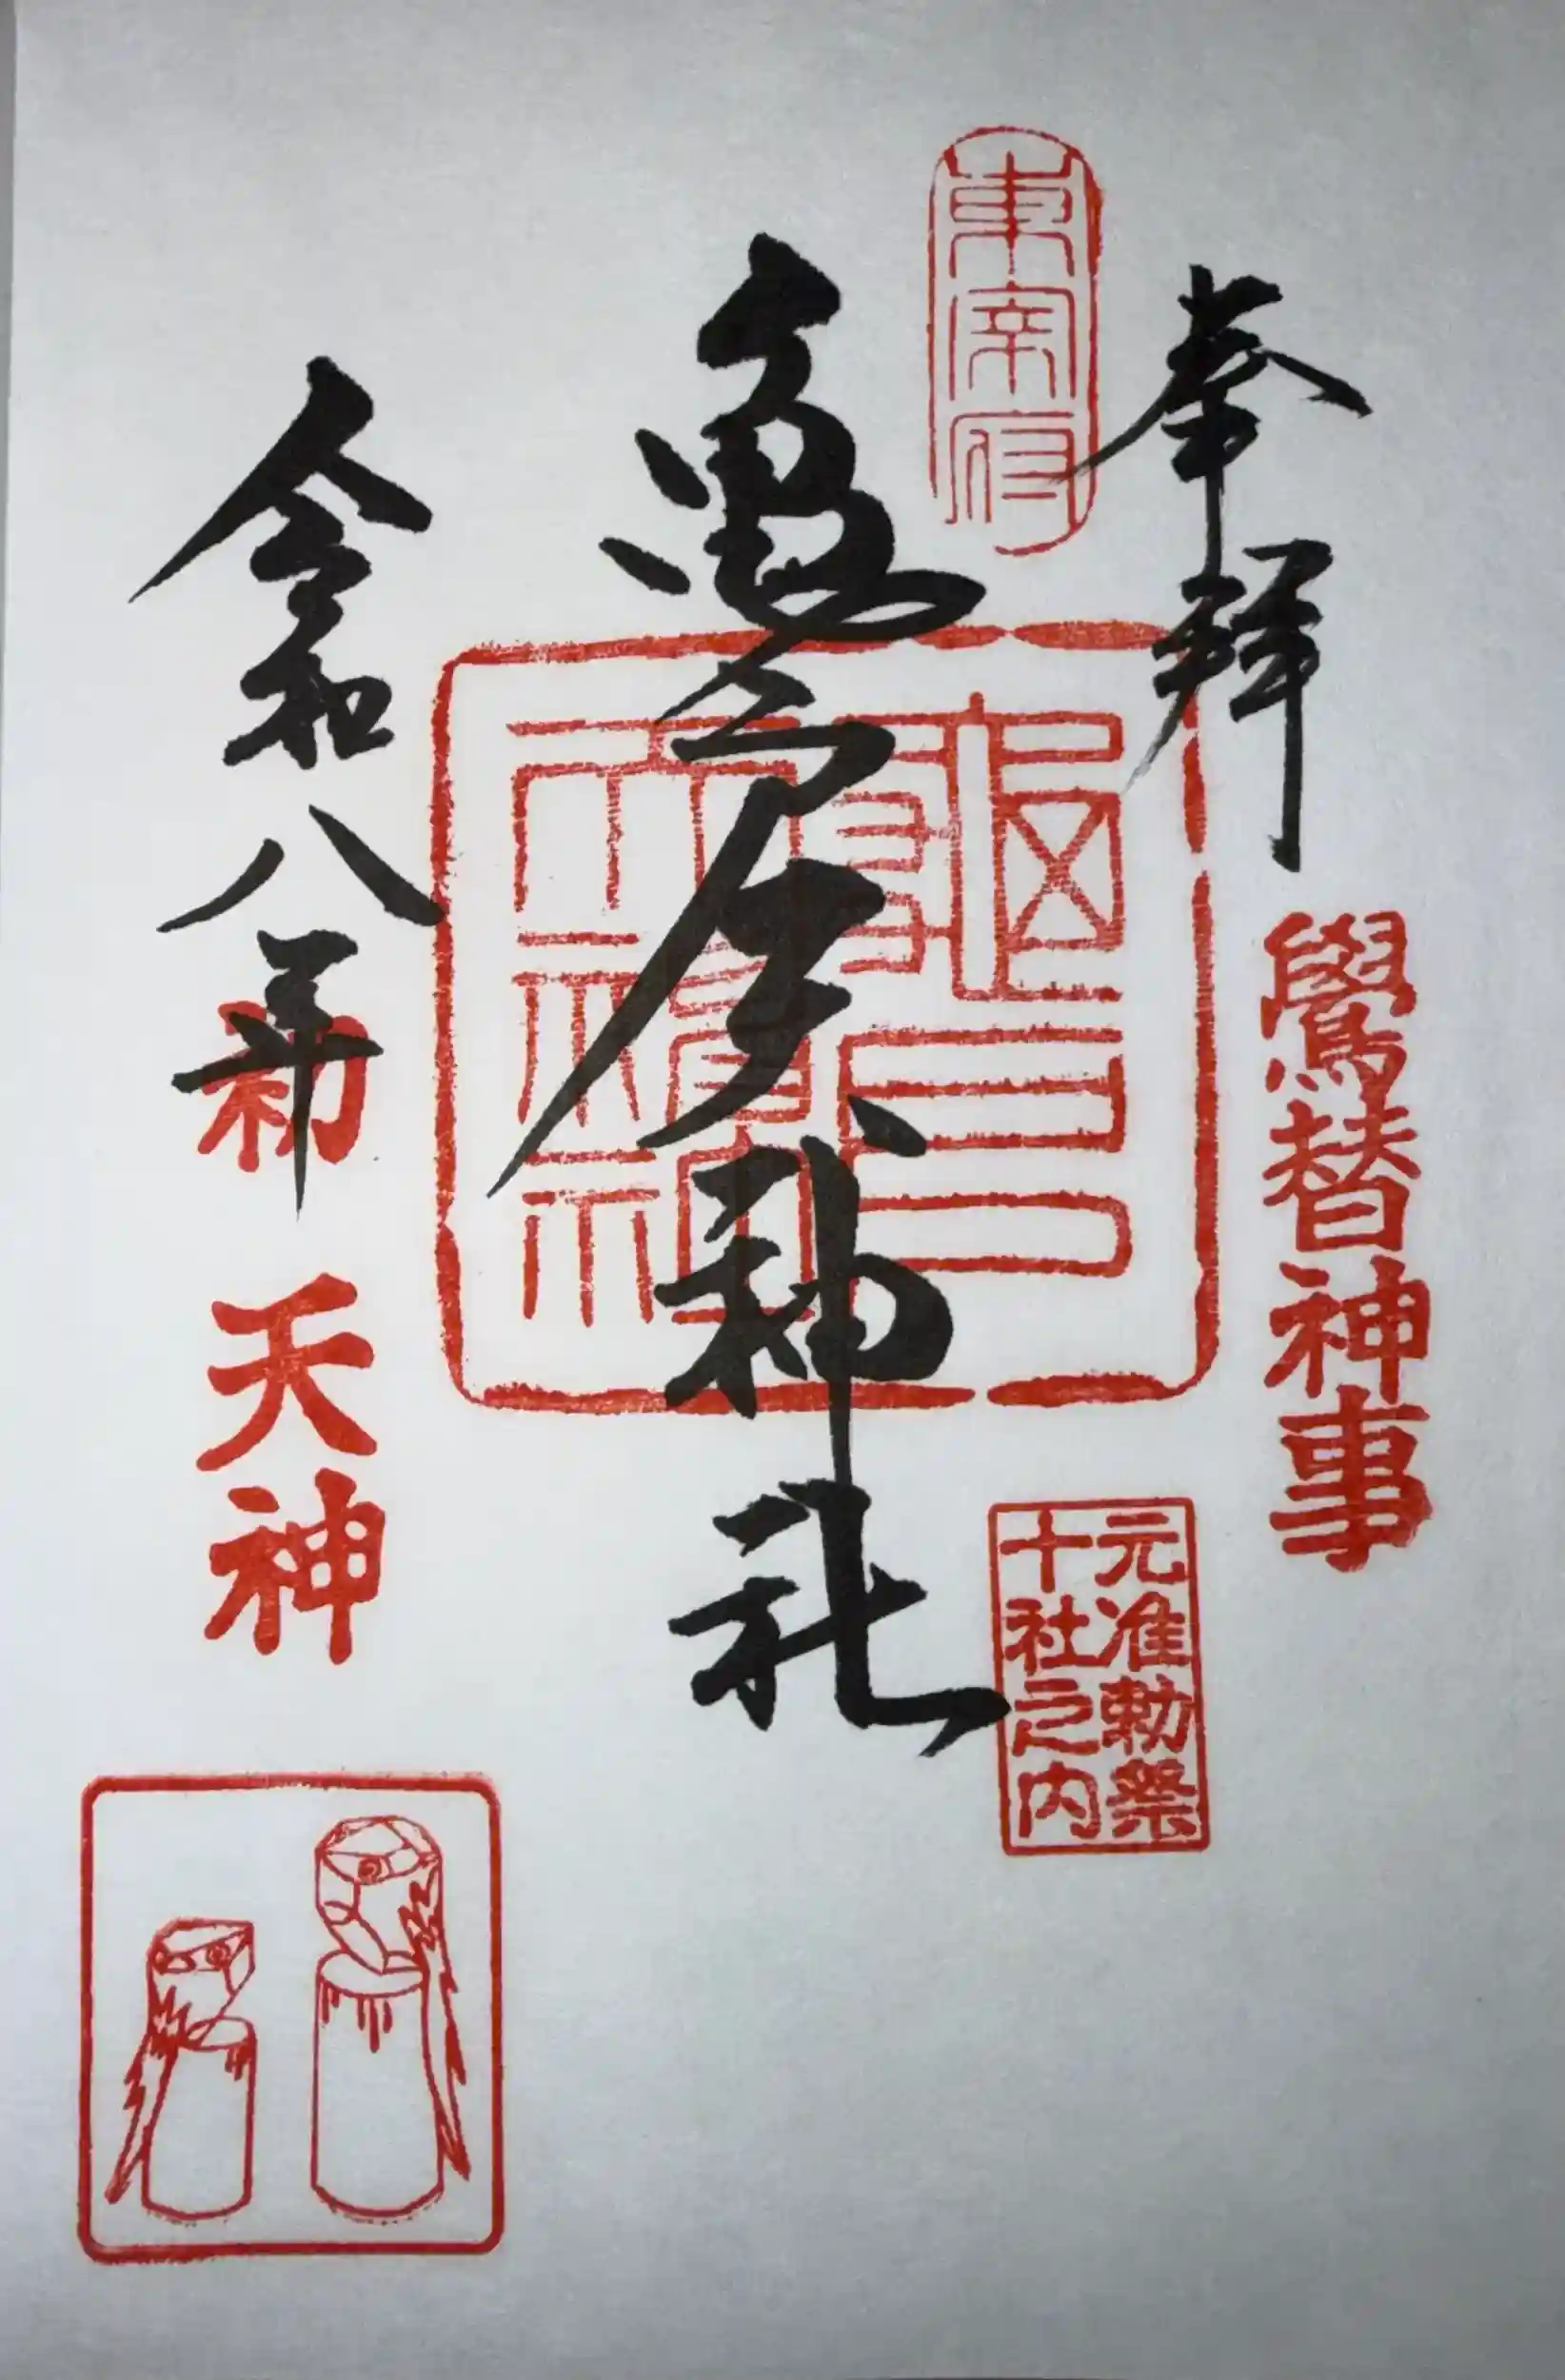 奉拝
鷽替神事
東宰府
元准勅祭
十社之内
亀戸天神社
令和八年
初天神